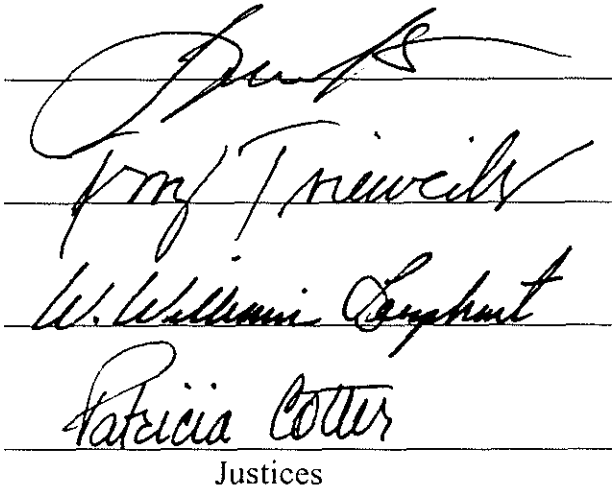 Terry Trieweiler
W. William Leaphart
Patricia Cotter
Justices